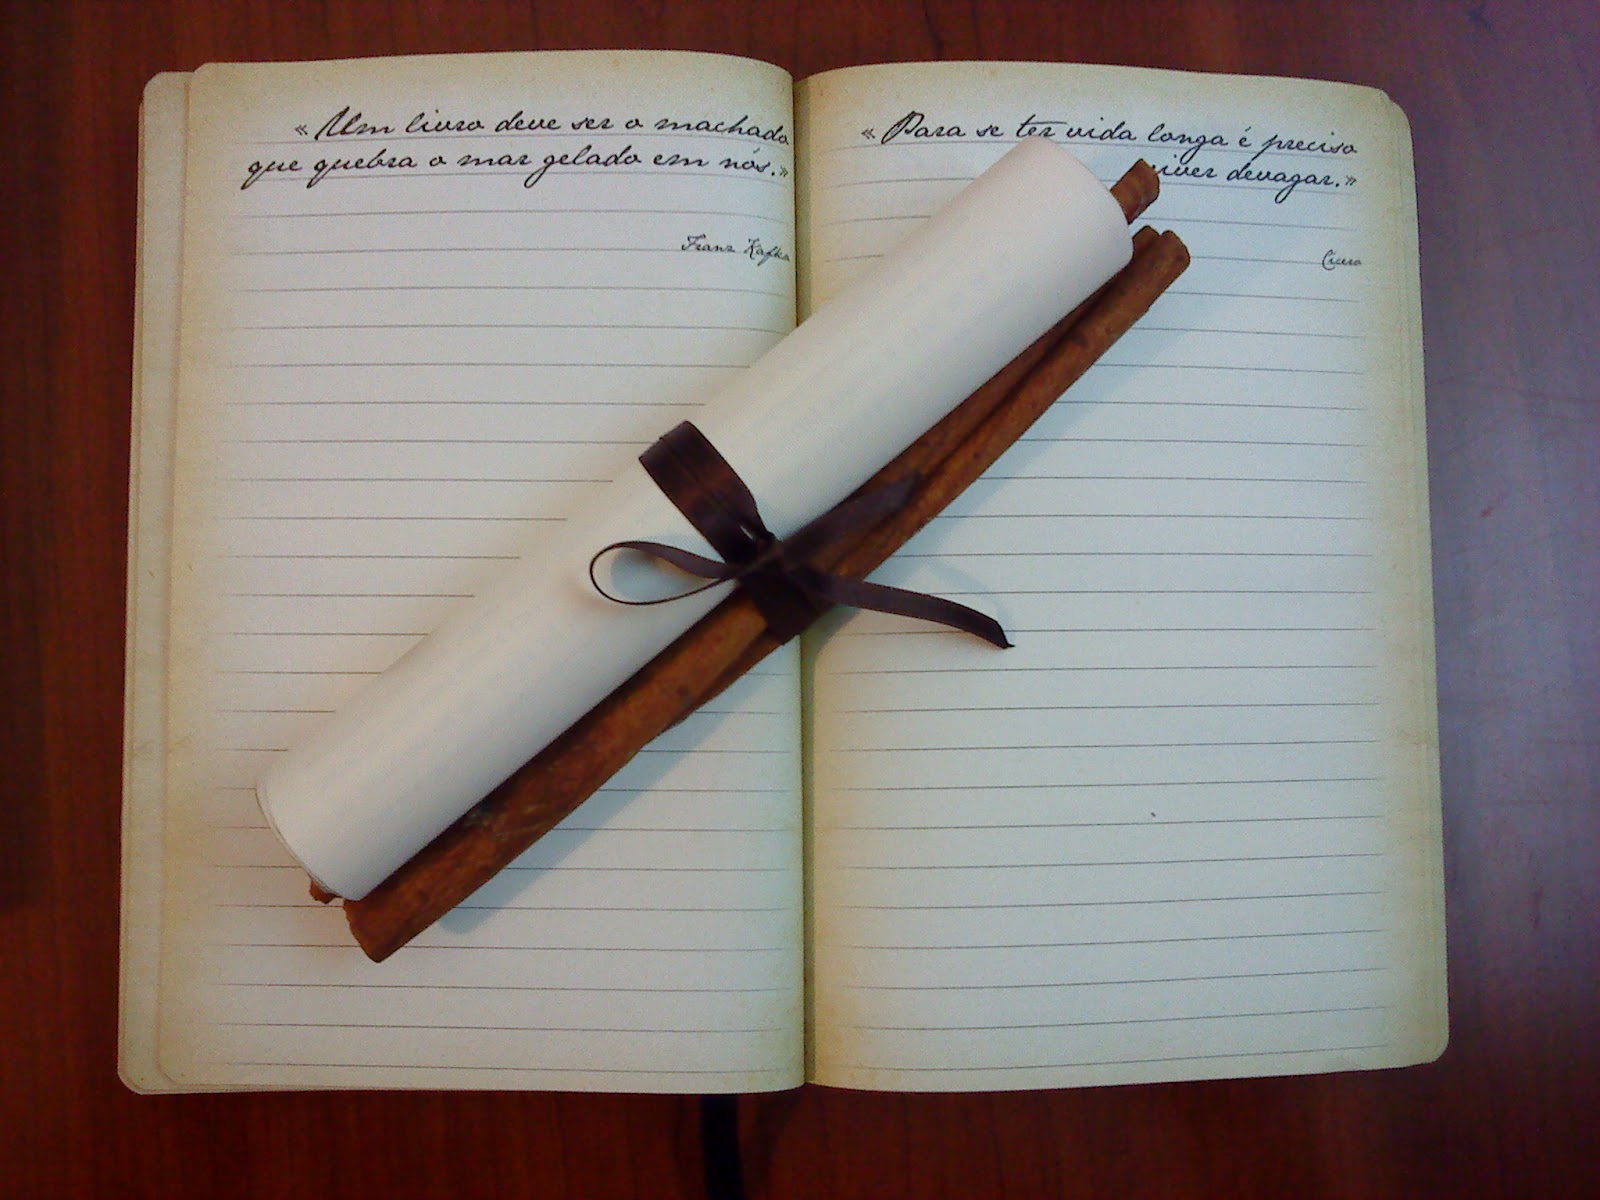 « Um livro deve ser o machado
que quebra o mar gelado em nós.»
Franz Kafka
« Para se ter vida longa é preciso
iver devagar.»
Cícero